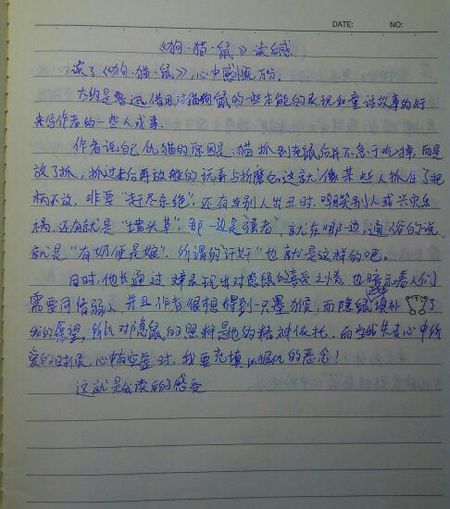 DATE: NO:
《狗·猫·鼠》读后感
读了《狗·猫·鼠》,心中感慨万分。
大约是鲁迅借用对猫狗鼠的一些本能的表现和童话故事的好
来写作者的一些人或事。
作者说自己仇猫的原因是:猫抓到老鼠后并不急于吃掉,而是
放了抓,抓过来后再放般的玩弄与折磨。这就像某些人抓住了把
柄不放,非要“赶尽杀绝”,还有在别人出丑时,嘲笑别人或兴灾乐
祸,还有就是“墙头草”,那一边是强者,就在哪一边,通俗的说
就是“有奶便是娘”,所谓的“奸奸”也就是这样的吧。
同时,他也通过文章表现出对隐鼠的喜爱之情,也暗示着人们
需要同情弱人,并且作者很想得到一只墨猴,而隐鼠填补了
我的愿望,所以对隐鼠的照料是他的精神依托,而当我失去心中所
爱的时候,心中有空虚时,我要充填以报仇的恶念!
这就是我读后的感受